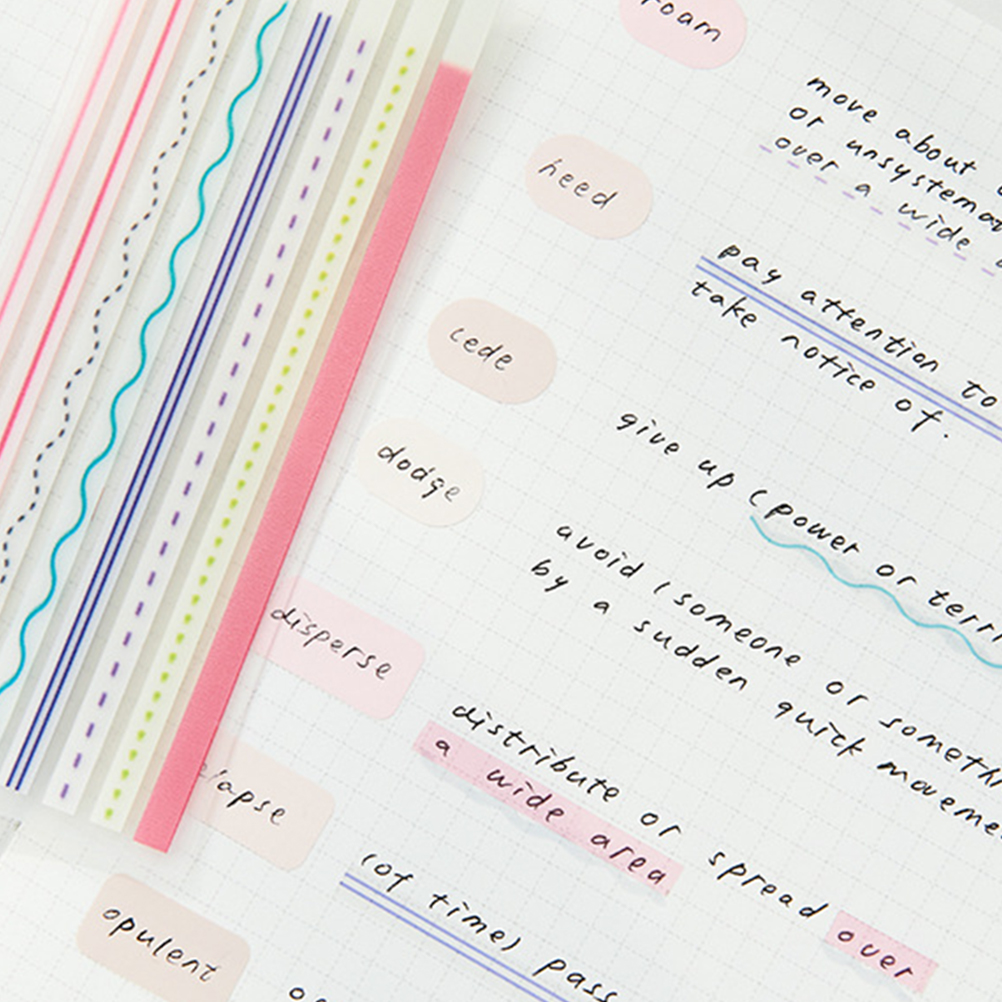 roam
move about
or unsystema
over a wide
heed
pay attention to
take notice of.
cede
give up (power or terri
dodge
avoid (someone or someth
by a sudden quick moveme
disperse
distribute or spread over
a wide area
elapse
(of time) pass
opulent